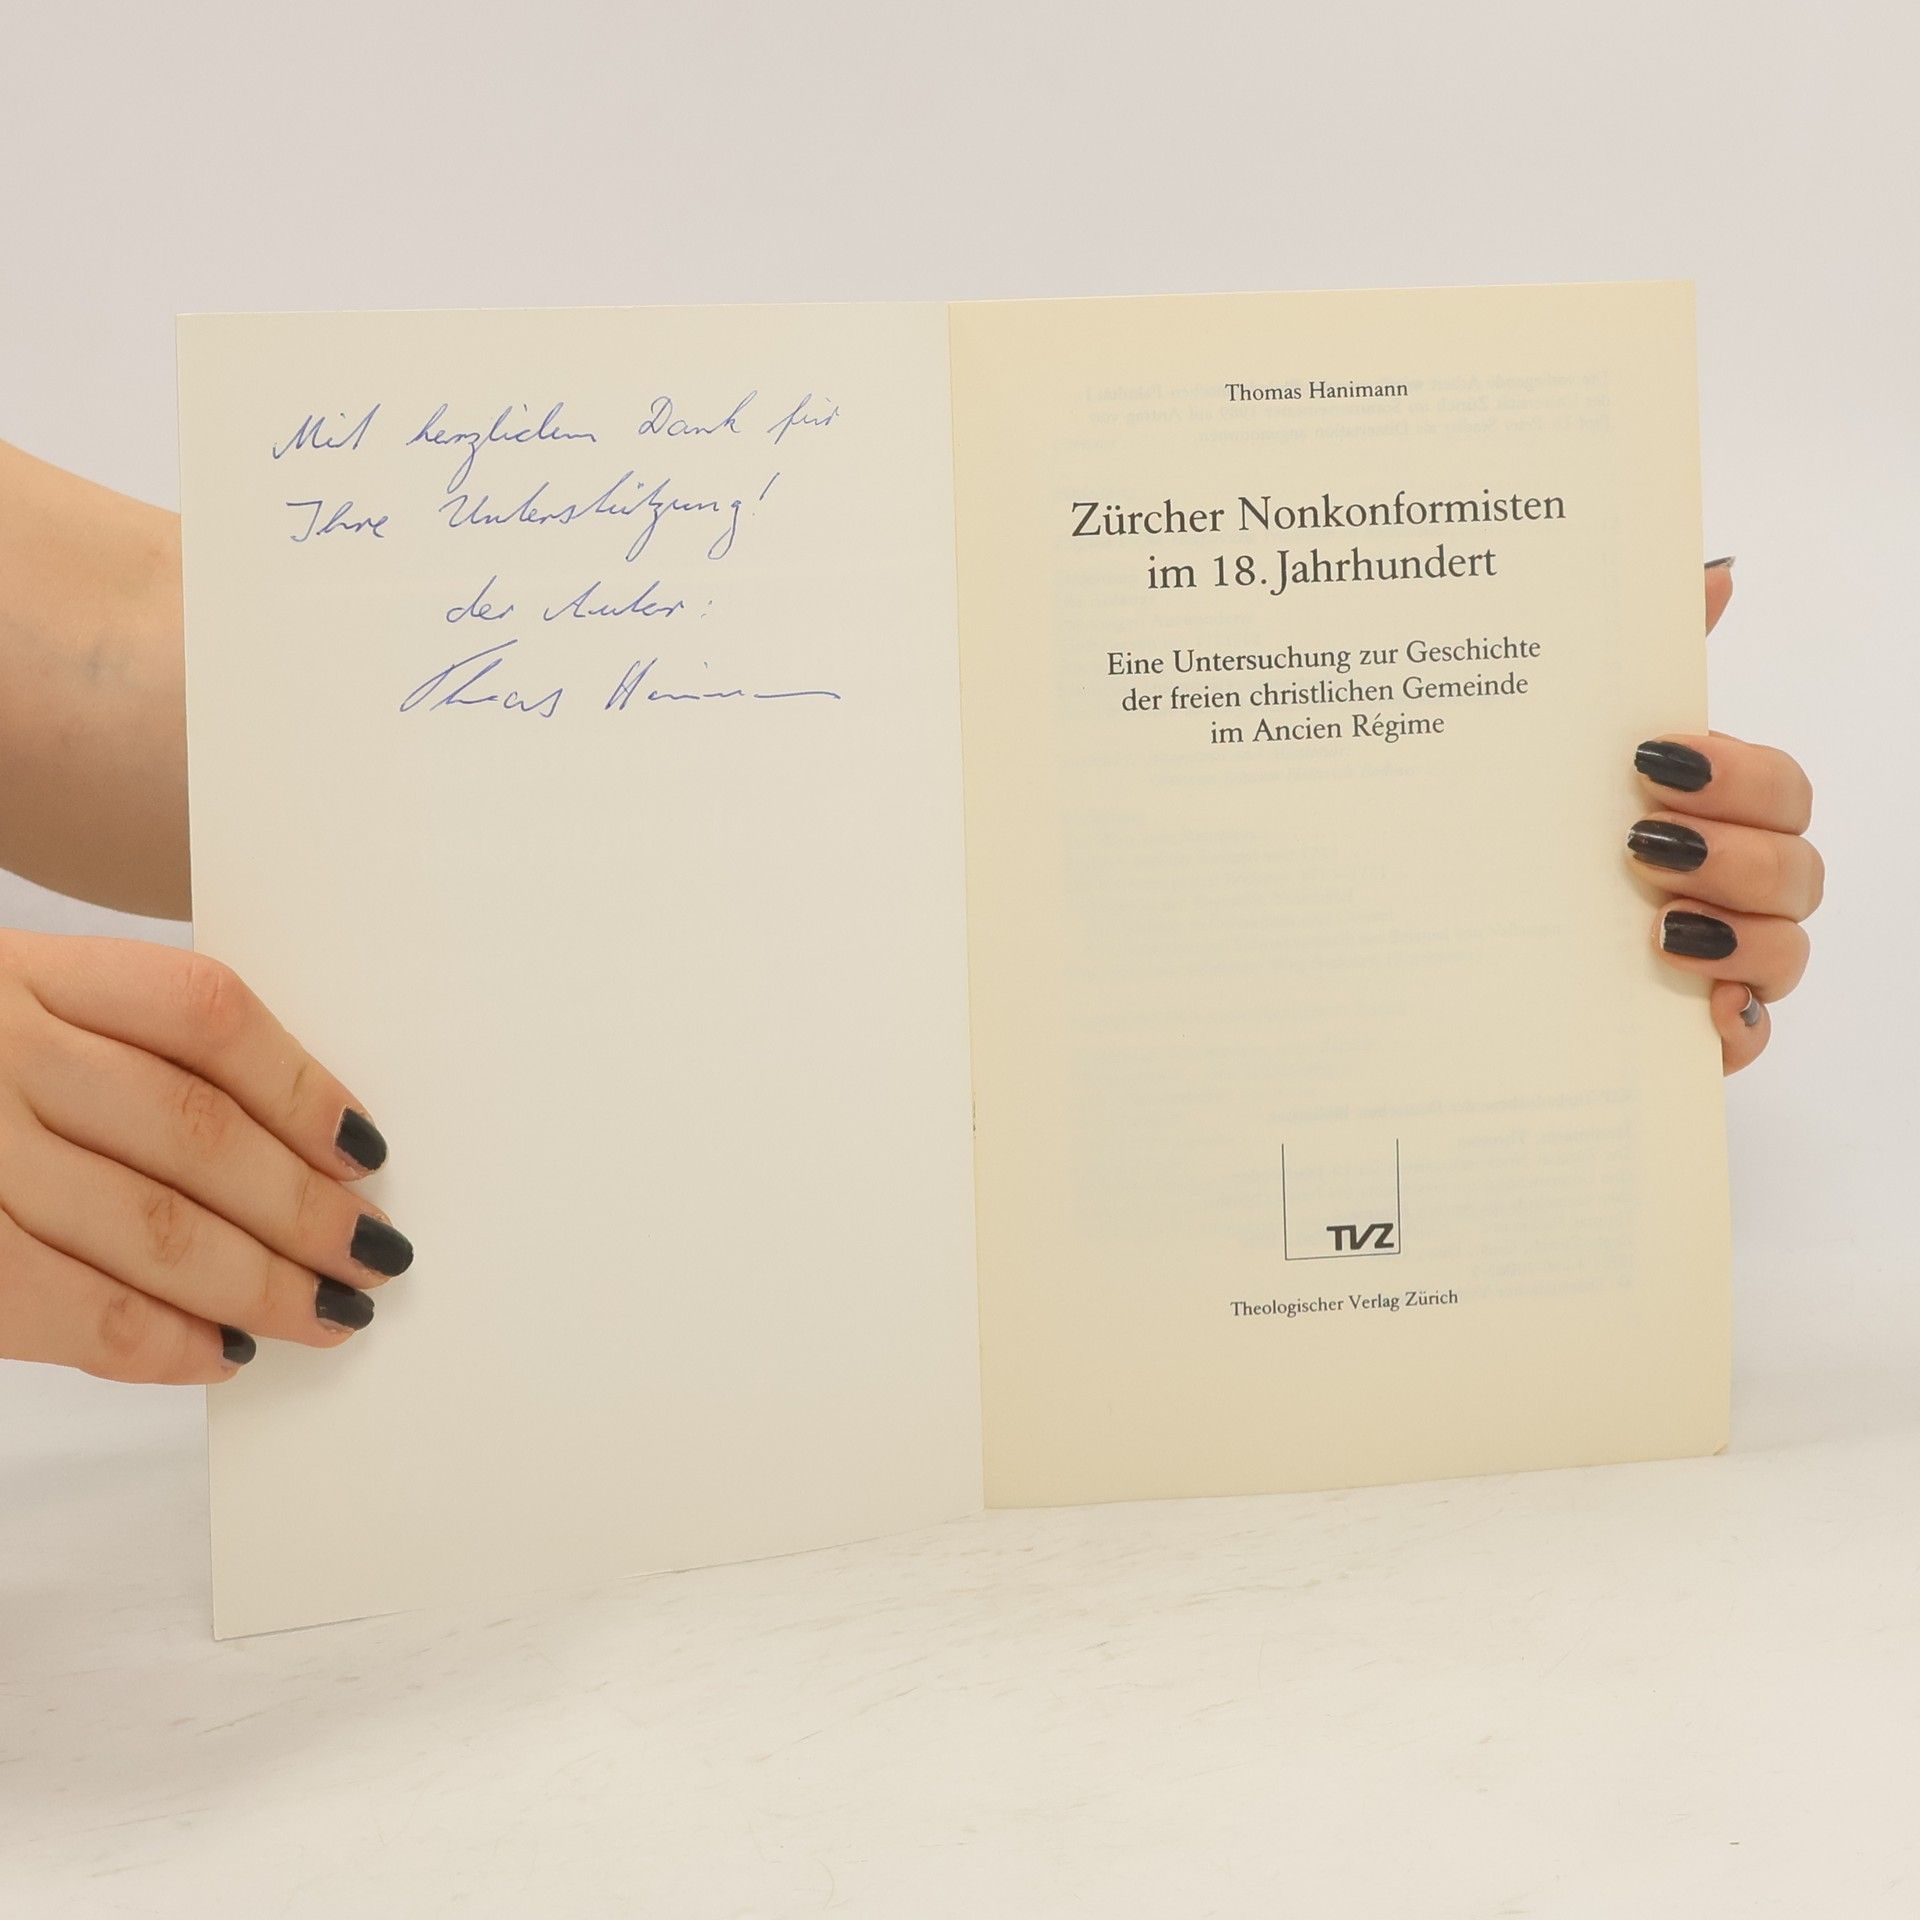 Mit herzlichem Dank für
Ihre Unterstützung!
der Autor:
Thomas Hanimann
Thomas Hanimann
Zürcher Nonkonformisten
im 18. Jahrhundert
Eine Untersuchung zur Geschichte
der freien christlichen Gemeinde
im Ancien Régime
TVZ
Theologischer Verlag Zürich